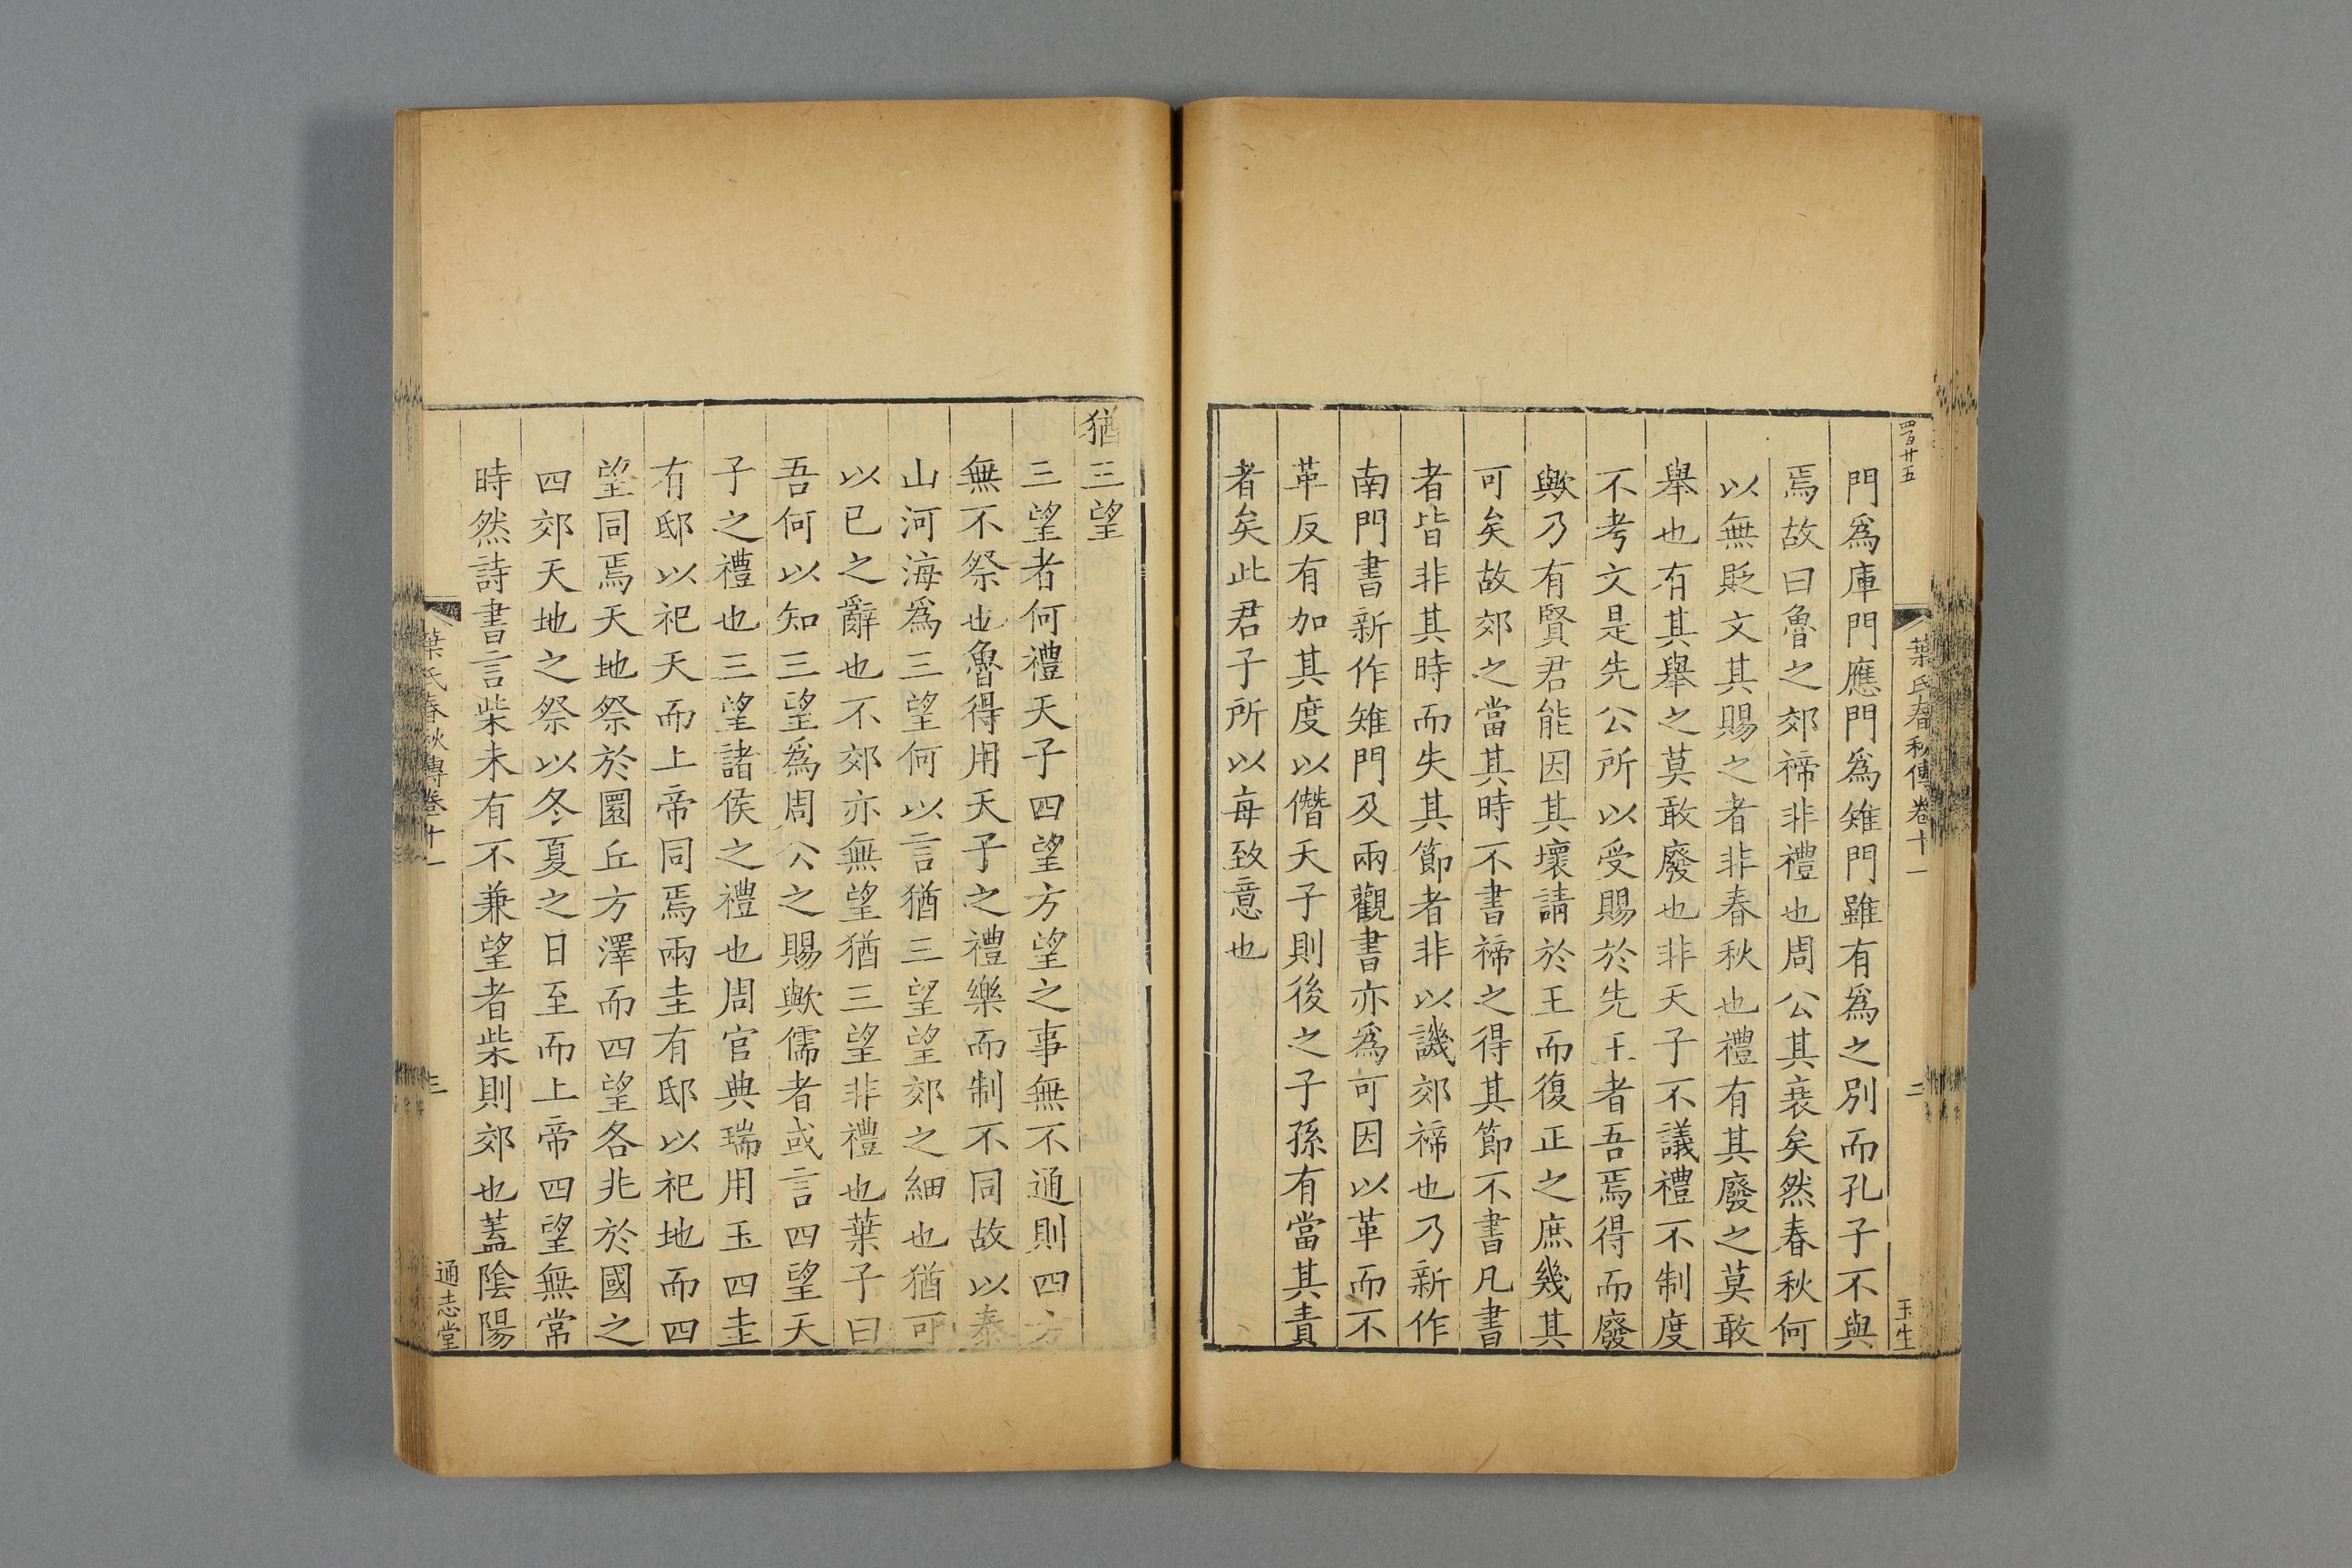 四百廿五
葉氏春秋傳卷十一
二
玉生
門爲庫門應門爲雉門雖有爲之別而孔子不與
焉故曰魯之郊禘非禮也周公其衰矣然春秋何
以無貶文其賜之者非春秋也禮有其廢之莫敢
舉也有其舉之莫敢廢也非天子不議禮不制度
不考文是先公所以受賜於先王者吾焉得而廢
歟乃有賢君能因其壞請於王而復正之庶幾其
可矣故郊之當其時不書禘之得其節不書凡書
者皆非其時而失其節者非以譏郊禘也乃新作
南門書新作雉門及兩觀書亦爲可因以革而不
革反有加其度以僭天子則後之子孫有當其責
者矣此君子所以每致意也
猶三望
三望者何禮天子四望方望之事無不通則四方
無不祭也魯得用天子之禮樂而制不同故以泰
山河海爲三望何以言猶三望望郊之細也猶可
以已之辭也不郊亦無望猶三望非禮也葉子曰
吾何以知三望爲周公之賜歟儒者或言四望天
子之禮也三望諸侯之禮也周官典瑞用玉四圭
有邸以祀天而上帝同焉兩圭有邸以祀地而四
望同焉天地祭於圜丘方澤而四望各兆於國之
四郊天地之祭以冬夏之日至而上帝四望無常
時然詩書言柴未有不兼望者柴則郊也蓋陰陽
葉氏春秋傳卷十一
三
通志堂